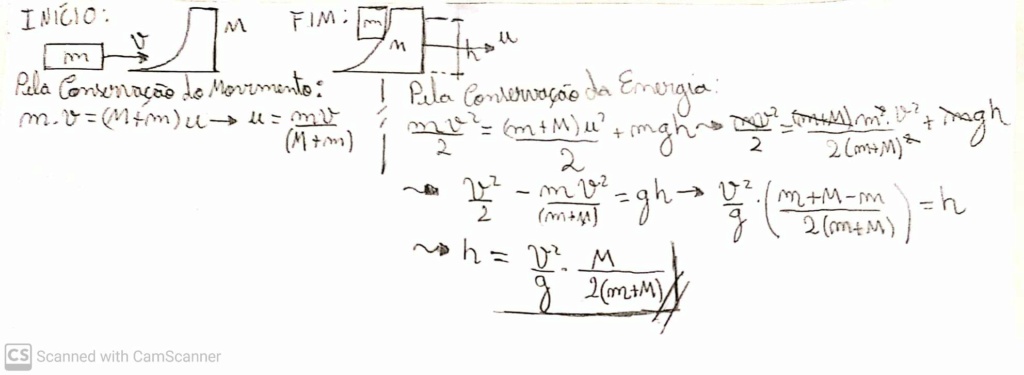 INÍCIO:
m v M
FIM: m M h u
Pela Conservação do Movimento:
m.v = (M+m)u → u = mv/(M+m)
Pela Conservação da Energia:
mv²/2 = (m+M)u²/2 + mgh ⇝ mv²/2 = (m+M)m².v²/2(m+M)² + mgh
⇝ v²/2 - mv²/(m+M) = gh → v²/g . (m+M-m/2(m+M)) = h
⇝ h = v²/g . M/2(m+M)
CS Scanned with CamScanner